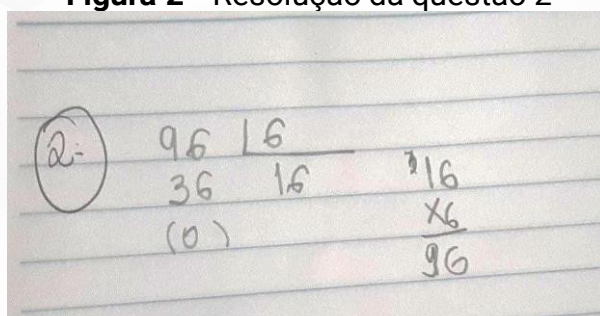 Figura 2 - Resolução da questão 2
2- 96 | 6
36 16
(0)
³16
x6
96